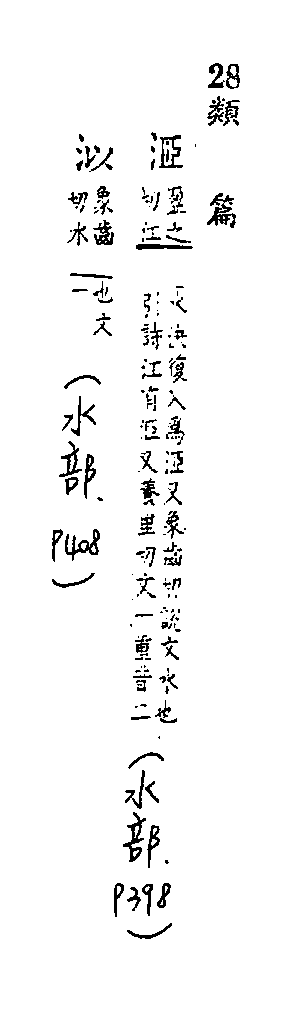 28類篇
洍
盈之
切江
水決復入爲洍又象齒切說文水也
引詩江有洍又養里切文一重音二
(水部.P398)
㳈
象齒
切水
也文
一
(水部.P408)